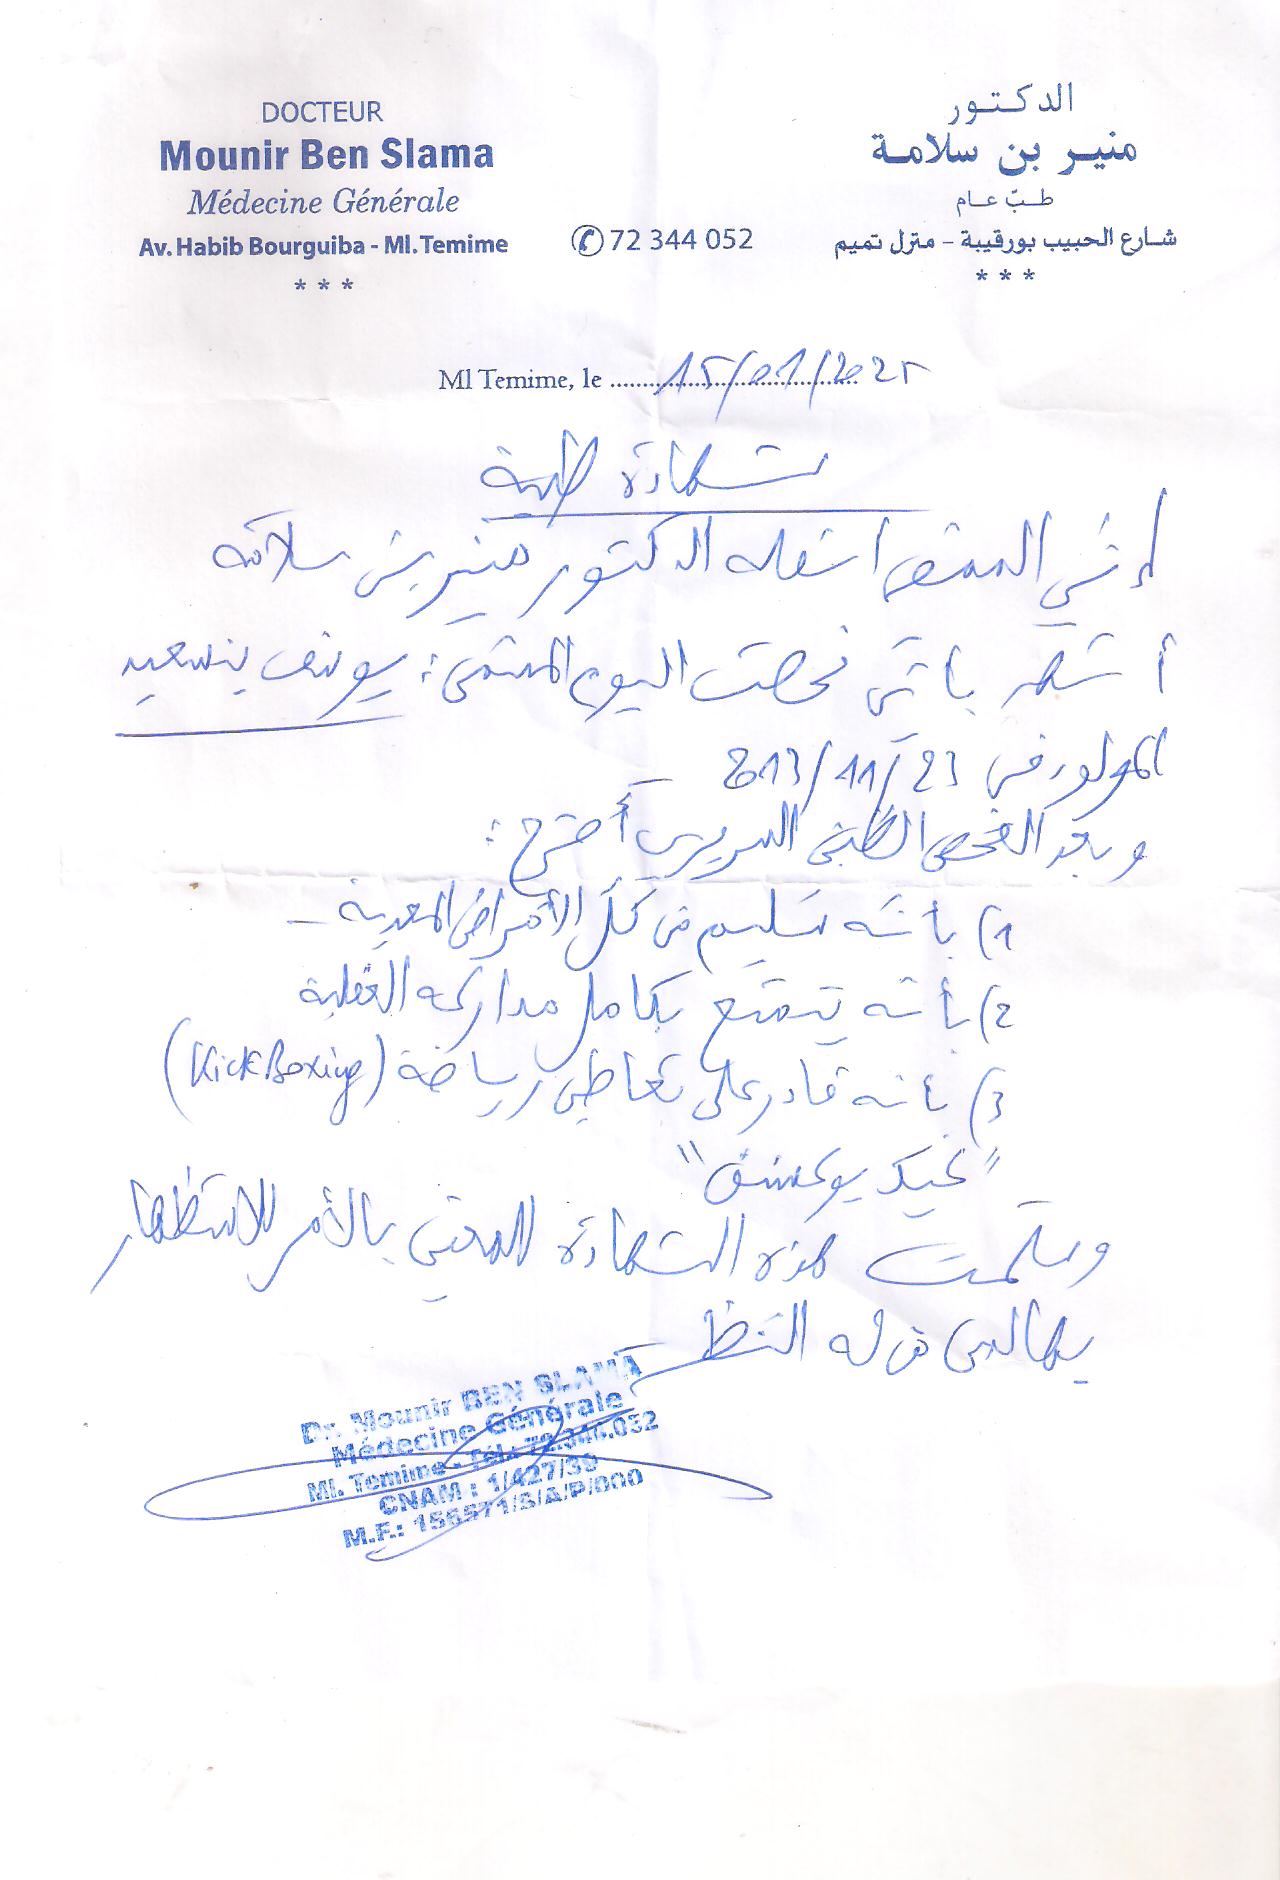 DOCTEUR
Mounir Ben Slama
Médecine Générale
Av. Habib Bourguiba - Ml.Temime
* * *
72 344 052
الدكتور
منير بن سلامة
طبّ عام
شارع الحبيب بورقيبة - منزل تميم
* * *
Ml Temime, le 15/01/2025
شهادة طبية
إنّي الممضي أسفله الدكتور منير بن سلامة
أشهد بأنّي فحصت اليوم المسمّى : يوسف بنسعيد
المولود في 23/11/2013
وبعد الفحص الطبّي السريري أصرّح :
1) بأنّه سليم من كلّ الأمراض المعدية -
2) بأنّه يتمتّع بكامل مداركه العقلية
3) بأنّه قادر على تعاطي رياضة (Kick Boxing)
"كيك بوكسنق"
وسلّمت هذه الشهادة للمعني بالأمر للاستظهار
بها لدى من له النظر
Dr. Mounir BEN SLAMA
Médecine Générale
Ml. Temime - Tél.: 72.344.052
CNAM : 1/427/39